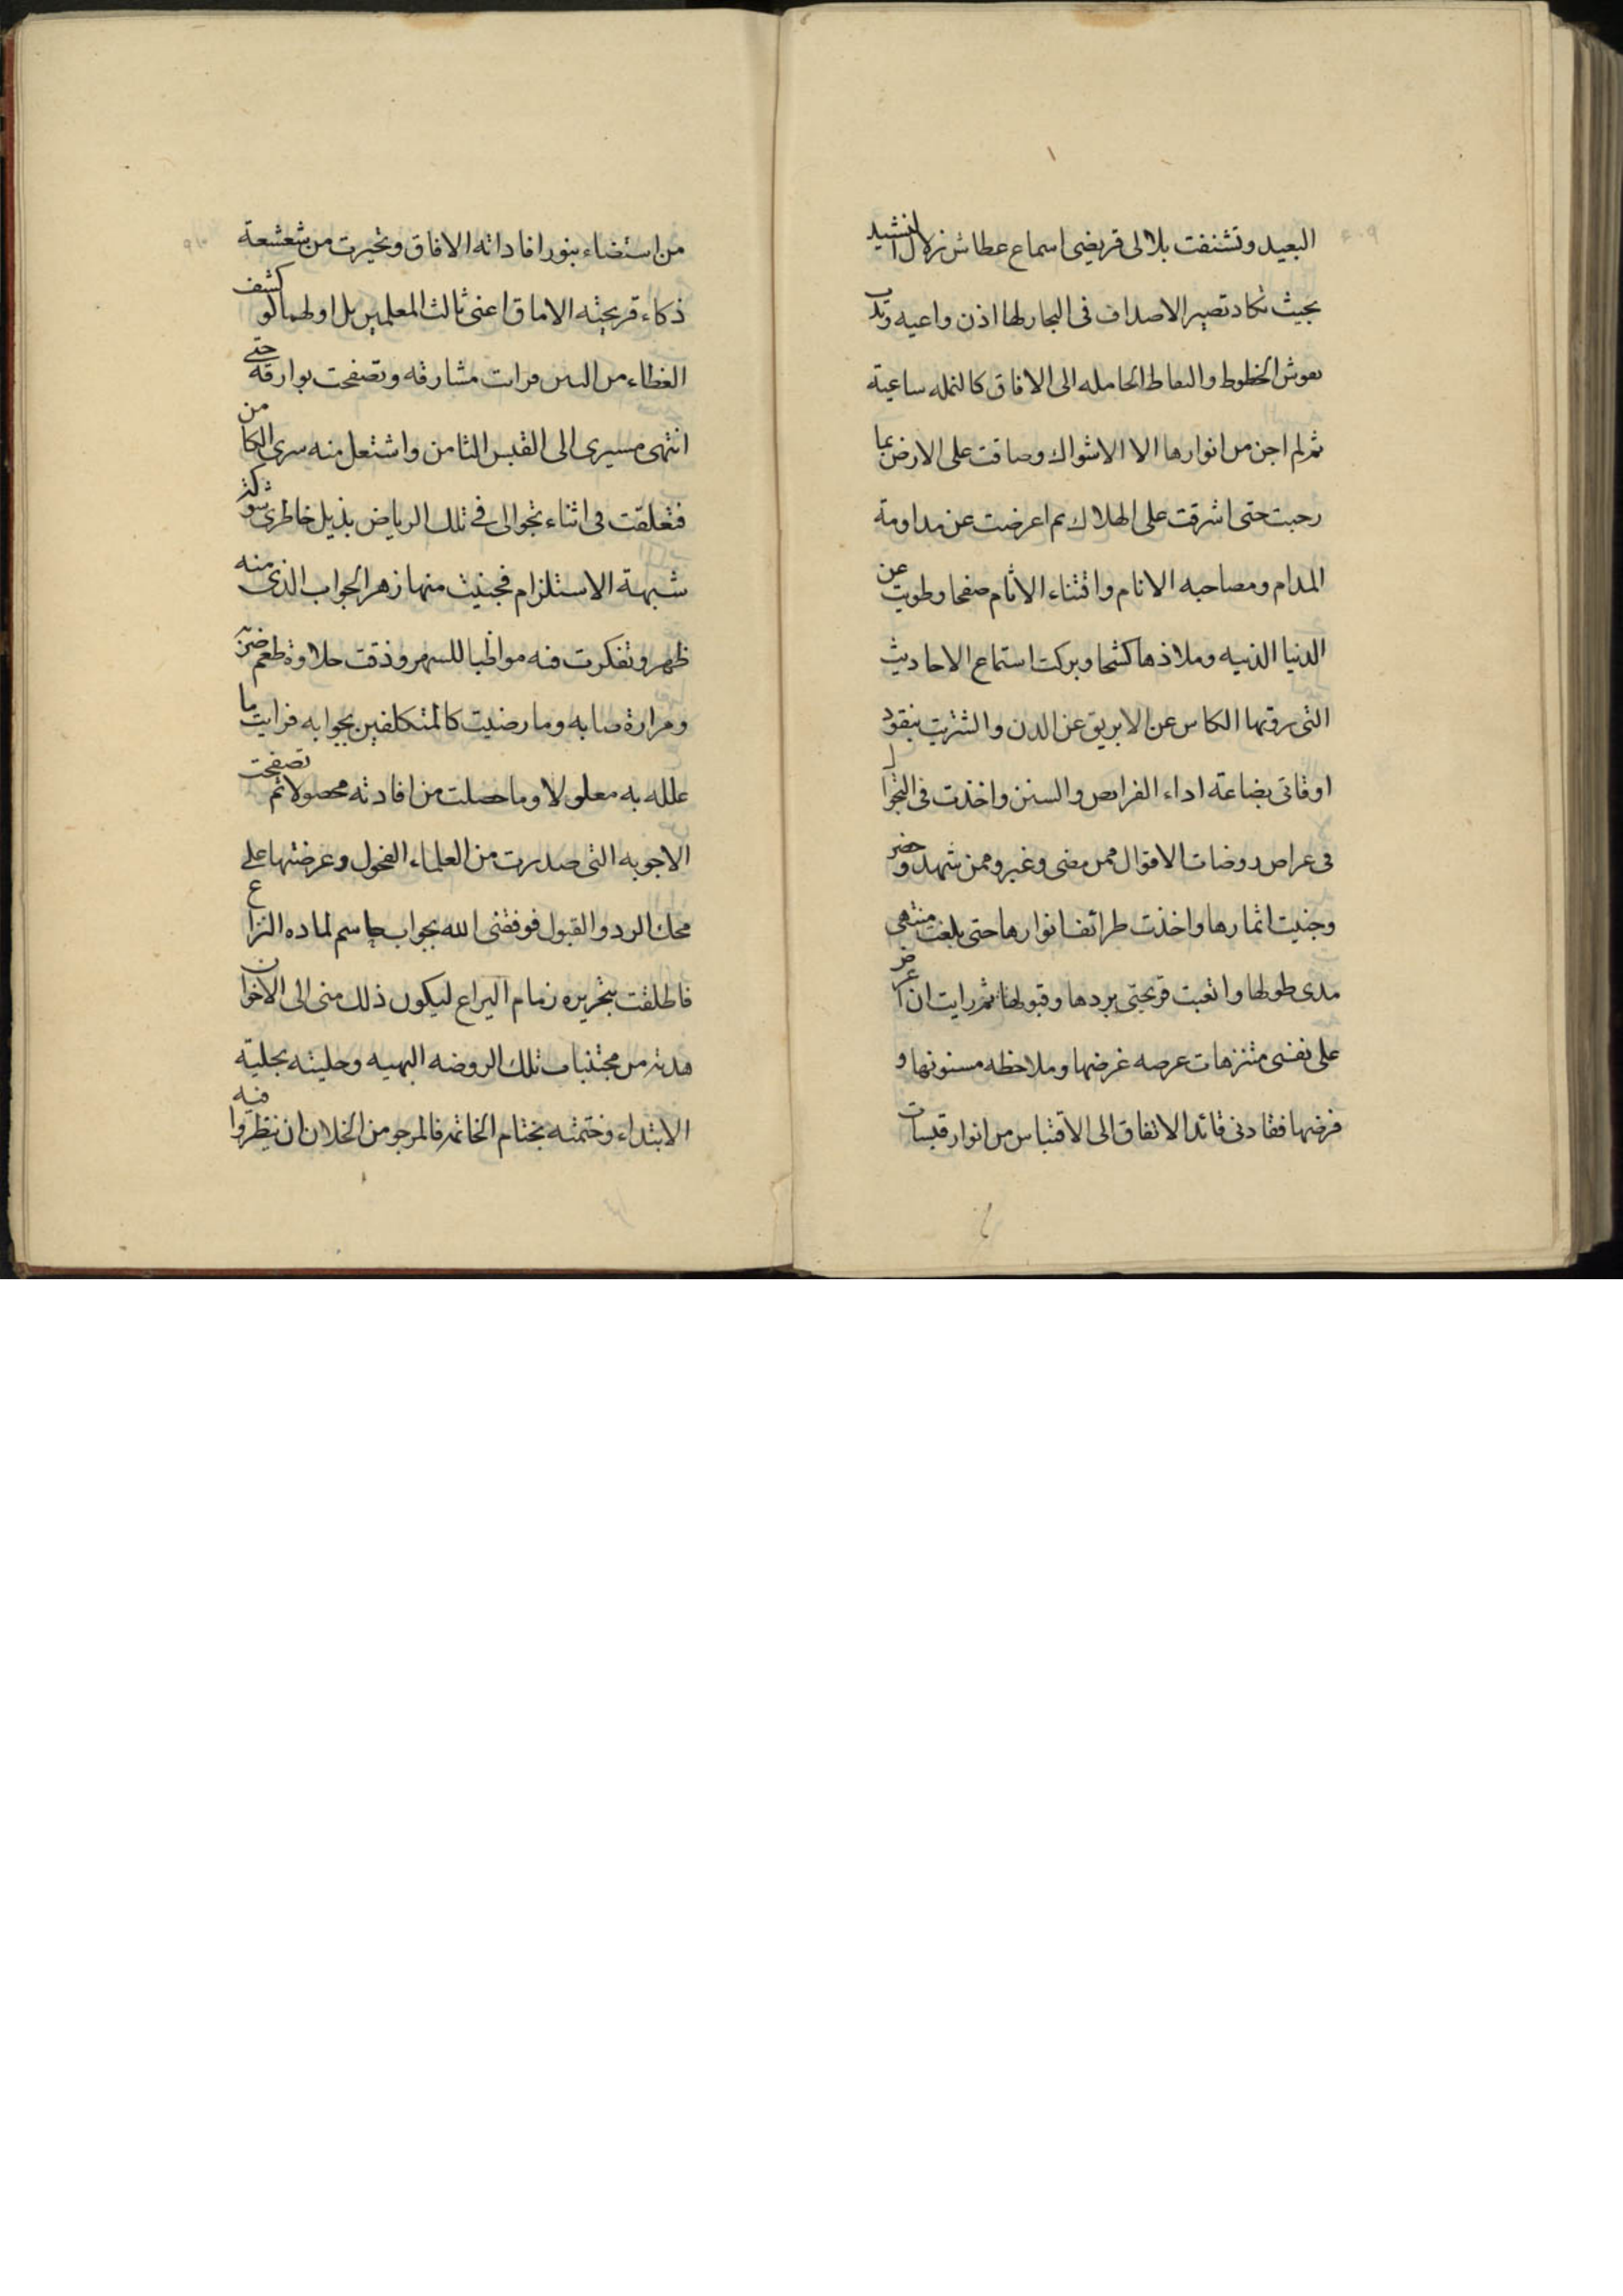 البعيد وتشنفت بلالى قريضى اسماع عطاش زلال النشيد
بحيث تكاد تصير الاصداف فى البحار لها اذن واعيه وتدب
نقوش الخطوط والنقاط الحامله الى الافاق كالنمله ساعية
ثم لم اجن من انوارها الا الاشواك وضاقت على الارض بما
رحبت حتى اشرفت على الهلاك ثم اعرضت عن مداومة
المدام ومصاحبه الانام واقتناء الاثام صفحا وطويت عن
الدنيا الدنيه وملاذها كشحا وبركت استماع الاحاديث
التى يروتها الكاس عن الابريق عن الدن والشتريت بنقود
اوقاتى بضاعة اداء الفرايض والسنن واخذت فى التجوال
فى عراص روضات الاقوال ممن مضى وغبر وممن شهد وحضر
وجنيت اثمارها واخذت طرائف انوارها حتى بلغت منتهى
مدى طولها واتعبت قريحتى بردها وقبولها ثم رايت ان اعرض
على نفسى متنزهات عرصه غرضها وملاحظه مسنونها و
فرضها فقادنى قائد الاتفاق الى الاقتباس من انوار قبسات
من استضاء بنور افاداته الافاق وتحيرت من شعشعة
ذكاء قريحته الاماق اعنى ثالث المعلمين بل اولهما لو كشف
الغطاء من البين فرايت مشارقه وتصفحت بوارقه حتى
انتهى مسيرى الى القبس الثامن واشتعل منه سرى الكامن
فتعلقت فى اثناء تجوالى فى تلك الرياض بذيل خاطرى شوكة
شبهة الاستلزام فجنيت منها زهر الجواب الذى منه
ظهر وتفكرت فيه مواظبا للسهر وذقت حلاوة طعم ضربه
ومرارة صابه وما رضيت كالمتكلفين بجوابه فرايت ما
علله به معلولا وما حصلت من افادته محصولا ثم تصفحت
الاجوبه التى صدرت من العلماء الفحول وعرضتها على
محك الرد والقبول فوفقنى الله بجواب حاسم لماده النزاع
فاطلقت بتحريره زمام اليراع ليكون ذلك منى الى الاخوان
هدية من مجتنبات تلك الروضه البهيه وحليته بحلية
الابتداء وختمته بختام الخاتمه فالمرجو من الخلان ان ينظروا فيه